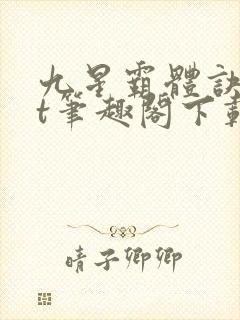 九星霸體訣
t筆趣閣下載
晴子卿卿